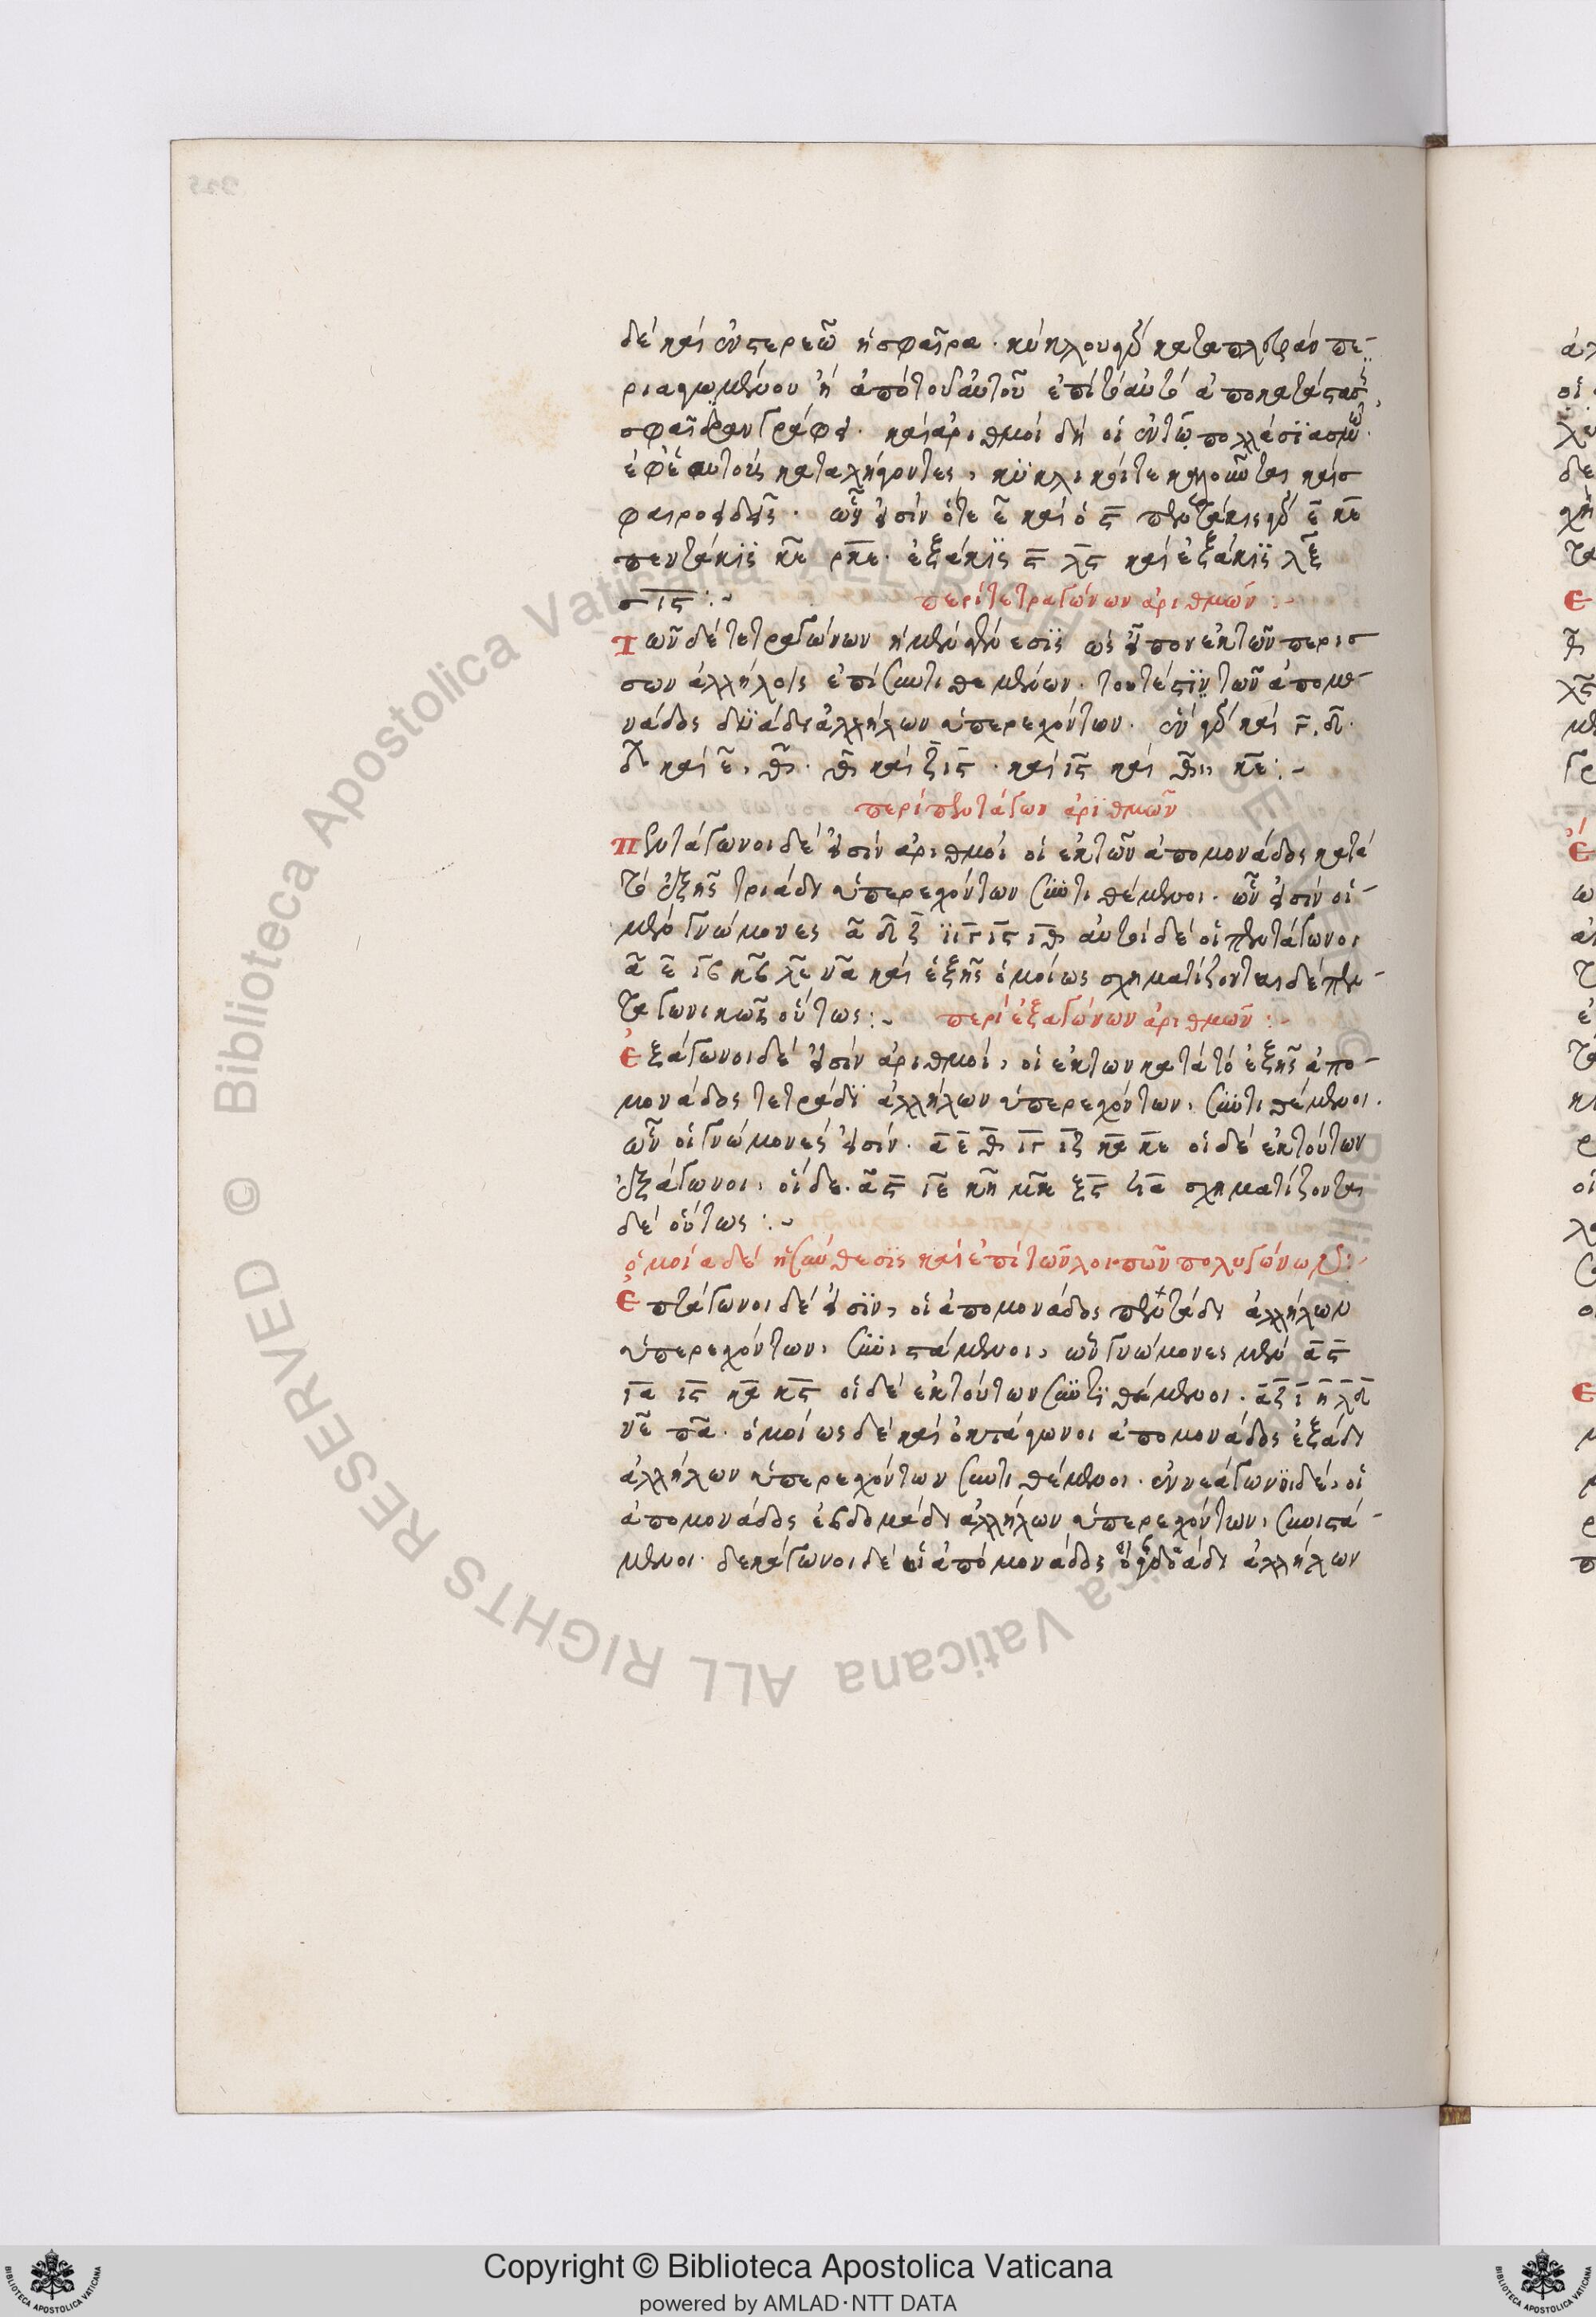 δὲ καὶ ἐν στερεῶ ἡ σφαῖρα. κύκλου γὰρ κατὰ πλευρὰν πε-
ριαγωμένου ἡ ἀπὸ τοῦ αὐτοῦ ἐπὶ τὸ αὐτὸ ἀποκατάστασις,
σφαῖραν γράφει. καὶ ἀριθμοὶ δὴ οἱ ἐν τῶ πολλασϊασμῶ.
ἐφ' ἑαυτοὺς καταλήγοντες, κϋκλικοί τε καλοῦνται καὶ σ
φαιροειδεῖς. ὧν εἰσὶν ὅτε ε καὶ ὁ ϛ πεντάκις γὰρ ε κε
πεντάκϊς κε ρκε. ἑξάκϊς ϛ λϛ καὶ ἑξάκϊς λϛ
σιϛ :~ περὶ τετραγώνων ἀριθμῶν :~
Τῶν δὲ τετραγώνων ἡ μὲν γένεσϊς ὡς εἶπον ἐκ τῶν περισ
σων ἀλλήλοις ἐπισυντιθεμένων. τουτέστϊν τῶν ἀπο μο-
νάδος δϋάδι ἀλλήλων ὑπερεχόντων. ἓν γὰρ καὶ γ, δ.
δ καὶ ε, θ. θ καὶ ζ ιϛ. καὶ ιϛ καὶ θ, κε :~
περὶ πενταγων ἀρϊθμῶν
πεντάγωνοι δέ εἰσὶν ἀριθμοὶ οἱ ἐκ τῶν ἀπο μονάδος κατὰ
τὸ ἑξῆς τριάδι ὑπερεχόντων συντιθέμενοι. ὧν εἰσὶν οἱ
μὲν γνώμονες α δ ζ ϊ ιγ ιϛ ιθ αὐτοὶ δὲ οἱ πεντάγωνοι
α ε ιβ κβ λε να καὶ ἑξῆς ὁμοίως σχηματίζονται δὲ πεν-
ταγωνικῶς οὕτως :~ περὶ ἑξαγώνων ἀριθμῶν :~
ἑξάγωνοι δέ εἰσὶν ἀριθμοί, οἱ ἐκ των κατὰ τὸ ἑξῆς ἀπο-
μονάδος τετράδϊ ἀλλήλων ὑπερεχόντων, συντιθέμενοι.
ὧν οἱ γνώμονές εἰσὶν. α ε θ ιγ ιζ κα κε οἱ δὲ ἐκ τούτων
ἑξάγωνοι, οἵδε. α ϛ ιε κη με ξϛ ϟα σχηματίζονται
δὲ οὕτως :~
ὁμοία δὲ ἡ σύνθεσϊς καὶ ἐπὶ τῶν λοιπῶν πολυγώνων :~
Ἑπτάγωνοι δέ εἰσϊν, οἱ ἀπο μονάδος πεντάδι ἀλλήλων
ὑπερεχόντων, συνιστάμενοι, ὧν γνώμονες μὲν α ϛ
ια ιϛ κα κϛ οἱ δὲ ἐκ τούτων συντϊθέμενοι. α ζ ι η λδ
νε πα. ὁμοίως δὲ καὶ ὀκτάγωνοι ἀπο μονάδος ἑξάδι
ἀλλήλων ὑπερεχόντων συντιθέμενοι. ἐννεάγωνϊοι δέ, οἱ
ἀπο μονάδος ἑβδομάδι ἀλλήλων ὑπερεχόντων, συνιστά-
μενοι. δεκάγωνοι δὲ οἱ ἀπὸ μονάδος ὀγδοάδι ἀλλήλων
Copyright © Biblioteca Apostolica Vaticana
powered by AMLAD·NTT DATA